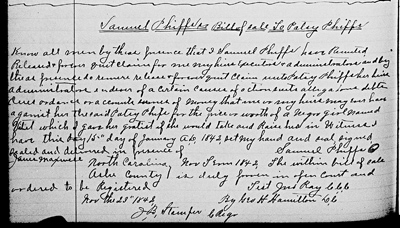 Samuel Phiffs Bill of sale To Patsy Phiffs
Know all men by these presence that I Samuel Phiffs have Remised
Released & forever quit claim for me my heirs Executors & administrators and by
these presence do remise release & forever quit Claim unto Patsy Phiffs her heirs
administrators and of a certain causes of action suits allegations debts
dues and or accounts sum of Money that me or my heirs may have
against her the said Patsy Phiffs for the price or worth of a Negro girl named
which I gave her if she would take and Raise her In Witness
have this day 15th day of January AD 1842 set my hand and seal signed
Sealed and delivered in presence of Samuel Phiffs
Jane
North Carolina Nov Term 1842 The within bill of sale
Ashe County is duly proven in open Court and
ordered to be Registered Test Jas Ray Clk
Nov the 23rd 1842 By Geo H Hamilton
J B Stamper Regr